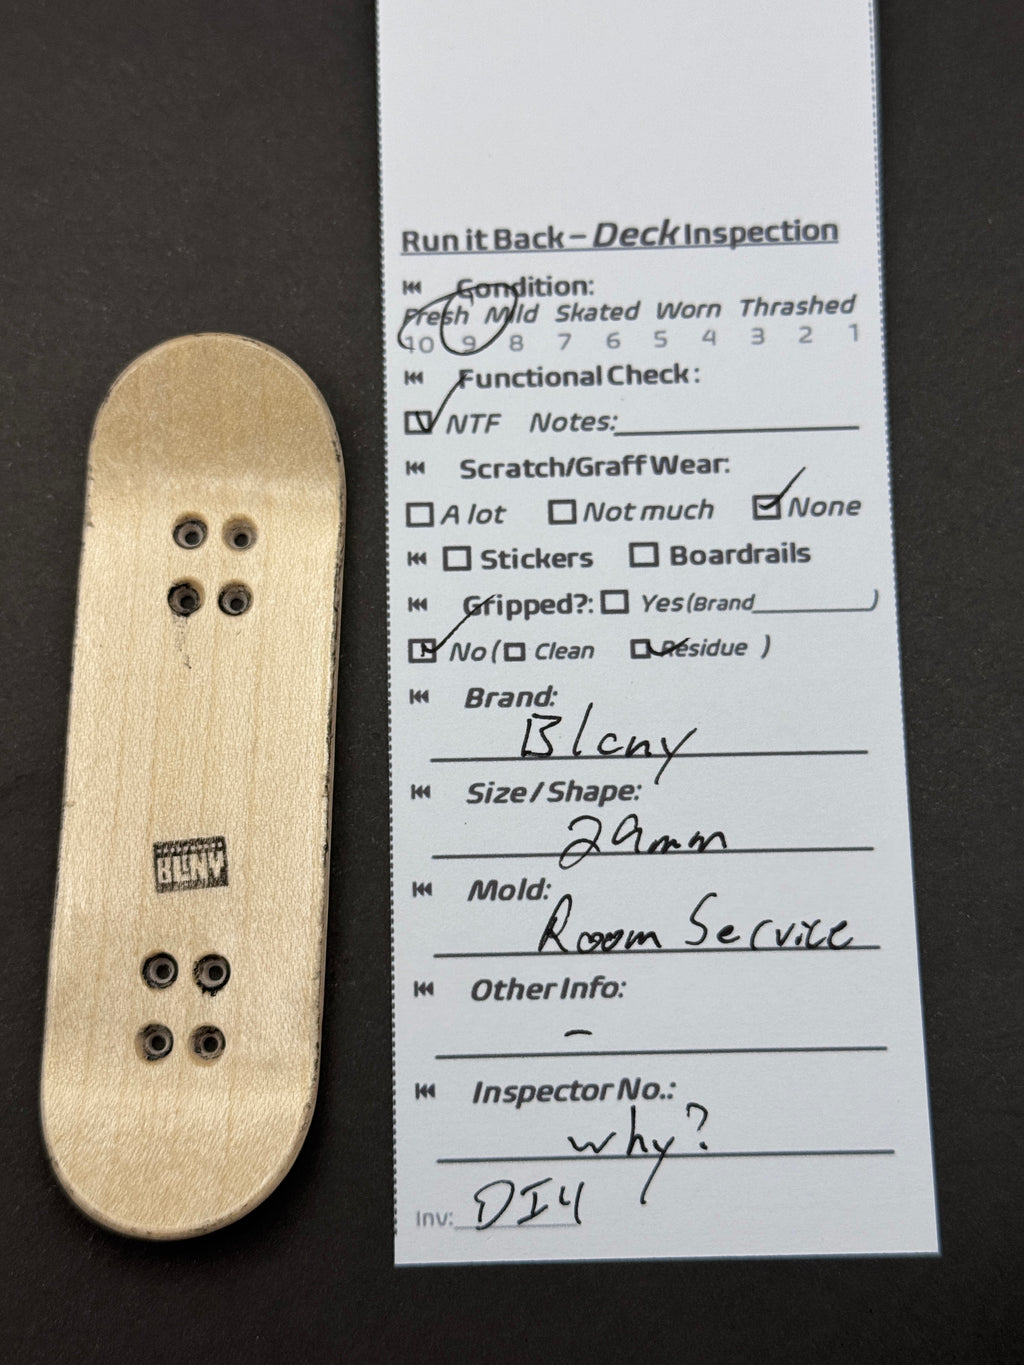 Run it Back – Deck Inspection
Condition:
Fresh Mild Skated Worn Thrashed
10 9 8 7 6 5 4 3 2 1
Functional Check:
NTF Notes:
Scratch/Graff Wear:
A lot Not much None
Stickers Boardrails
Gripped?: Yes (Brand )
No ( Clean Residue )
Brand:
Blcny
Size / Shape:
29mm
Mold:
Room Service
Other Info:
–
Inspector No.:
why?
Inv: DI4
BLNY